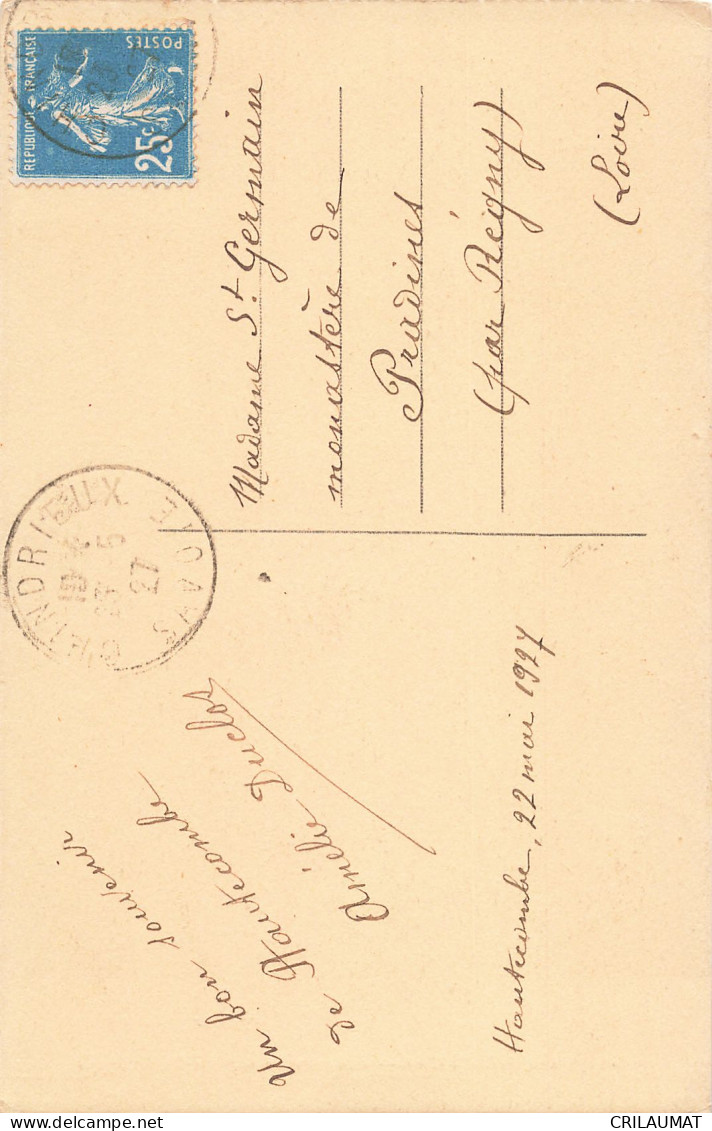 Un bon souvenir
de Hautecombe
Amélie Duclos
Hautecombe, 22 mai 1927
CHINDRIEUX
SAVOIE
23 5
27
REPUBLIQUE FRANÇAISE
POSTES
25c
Madame St Germain
monastère de
Pradines
(par Régny)
(Loire)
CRILAUMAT